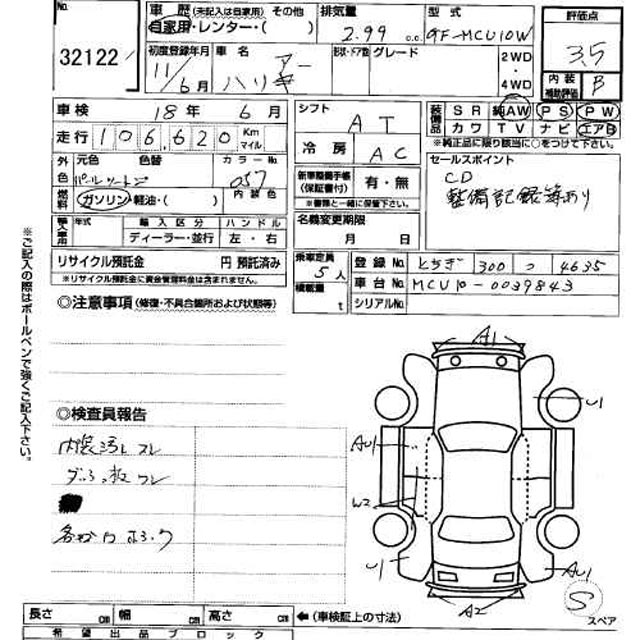 No. 32122
車歴 (未記入は自家用) その他
自家用・レンター・( )
排気量 2.99 c.c.
型式 GF-MCU10W
評価点 3.5
内装補助評価 B
初度登録年月 11/6月
車名 ハリアー
形状・ドア数 グレード
2WD・4WD
車検 18年 6月
シフト AT
装備品 SR 純AW PS PW
カワ TV ナビ エアB
※純正品に限り該当に○をつけて下さい。
走行 106,620 Km マイル
冷房 AC
セールスポイント
CD
整備記録簿あり
外色 元色 色替 カラーNo.
パールツートン 057 内装色
新車整備手帳(保証書付) 有・無
※書類と一緒に保管下さい。
燃料 ガソリン・軽油・( )
名義変更期限
月 日
輸入車用 年式 輸入区分 ハンドル
ディーラー・並行 左・右
リサイクル預託金 円 預託済み
※リサイクル預託金に資金管理料金は含まれません。
乗車定員 5人
積載量 t
登録No. とちぎ 300 つ 4635
車台No. MCU10-0039843
シリアルNo.
◎注意事項 (修復・不具合個所および状態等)
※ご記入の際はボールペンで強くご記入下さい。
◎検査員報告
内装汚レ スレ
ダッシュ板 ワレ
A1
U1
AU1
W2
U1
AU1
A2
S
スペア
長さ cm 幅 cm 高さ cm ←(車検証上の寸法)
希望出品ブロック